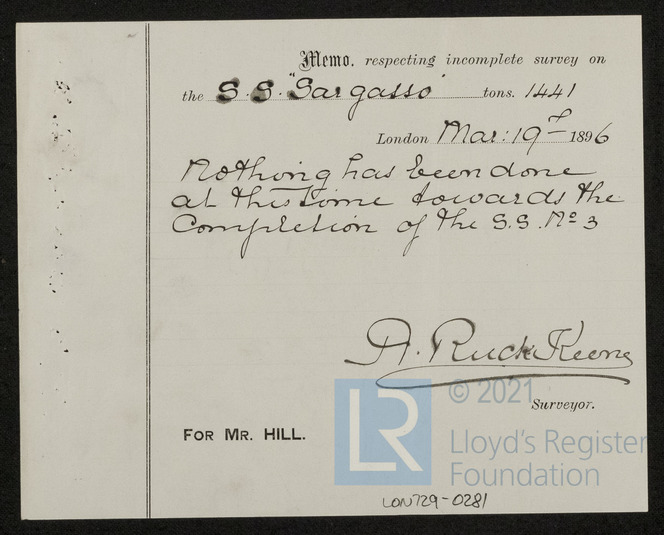 Memo. respecting incomplete survey on
the S.S. "Sargasso" tons. 1441
London Mar: 19th 1896
Nothing has been done
at this time towards the
Completion of the S.S. No 3
A. Ruck Keene
Surveyor.
FOR MR. HILL.
LR
© 2021
Lloyd's Register
Foundation
LON729-0281